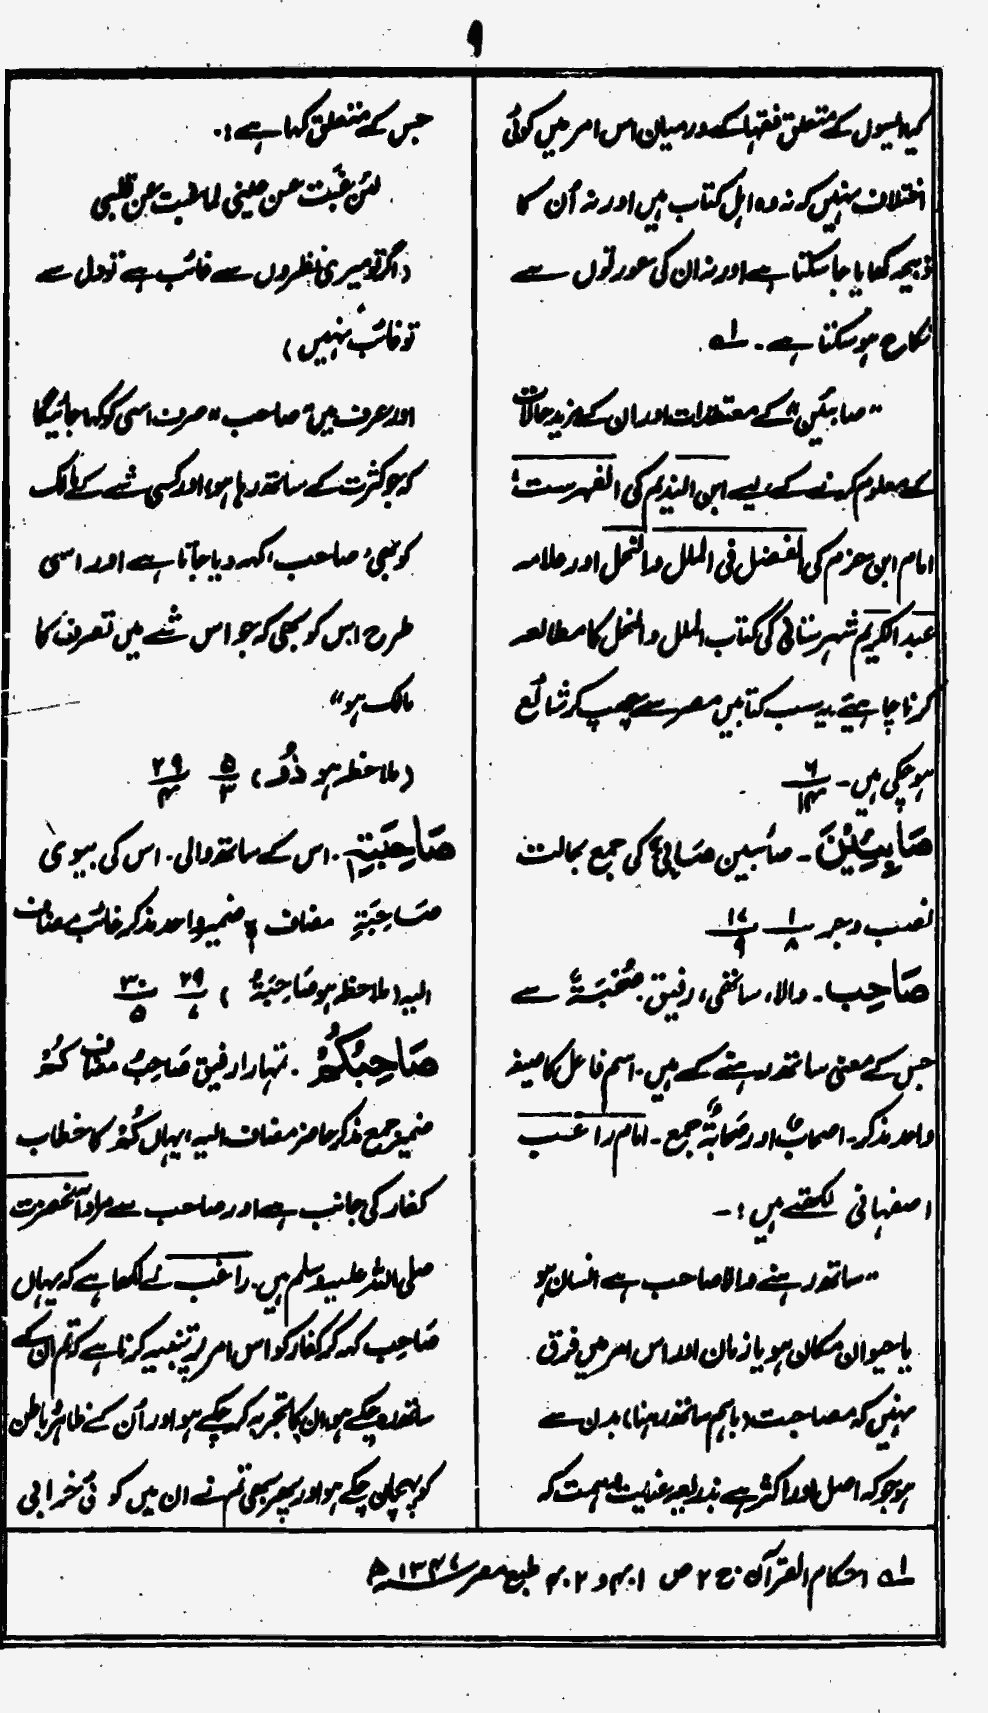 ۹
کہ ایسوں کے متعلق فقہا کے درمیان اس امر میں کوئی
اختلاف نہیں کہ نہ وہ اہل کتاب ہیں اور نہ اُن کا
ذبیحہ کھایا جا سکتا ہے اور نہ ان کی عورتوں سے
نکاح ہو سکتا ہے ۔ لہ
"صابئین" کے معتقدات اور ان کے مزید حالات
کے معلوم کرنے کے لیے ابن الندیم کی الفہرست،
امام ابن حزم کی الفصل فی الملل والنحل اور علامہ
عبدالکریم شہرستانی کی کتاب الملل والنحل کا مطالعہ
کرنا چاہیئے یہ سب کتابیں مصر سے چھپ کر شائع
ہو چکی ہیں۔ ۶/۱۴
صَابِئِیْنَ ۔ صائبین صَابِیٌٔ کی جمع بحالت
نصب و جر ۱/۸ ۱۷/۹
صَاحِب ۔ والا، ساتھی، رفیق صُحْبَۃٌ سے
جس کے معنی ساتھ رہنے کے ہیں۔ اسم فاعل کا صیغہ
واحد مذکر۔ اصحابٌ اور صَحَابَۃٌ جمع ۔ امام راغب
اصفہانی لکھتے ہیں :۔
"ساتھ رہنے والا صاحب ہے انسان ہو
یا حیوان مکان ہو یا زمان اور اس امر میں فرق
نہیں کہ مصاحبت (باہم ساتھ رہنا) بدن سے
ہو جو کہ اصل اور اکثر ہے بذریعہ عنایت و ہمت کہ
جس کے متعلق کہا ہے :۔
لئن غبت عن عینی لما غبت عن قلبی
(اگر تو میری نظروں سے غائب ہے تو دل سے
تو غائب نہیں)
اور عرف میں "صاحب" صرف اسی کو کہا جائیگا
کہ جو کثرت کے ساتھ رہا ہو، اور کسی شے کے مالک
کو بھی "صاحب" کہہ دیا جاتا ہے اور اسی
طرح اس کو بھی کہ جو اس شے میں تصرف کا
مالک ہو"
(ملاحظہ ہو ذُو) ۵/۳ ۲۹/۴
صَاحِبَتِہٖ ۔ اس کے ساتھ والی۔ اس کی بیوی
صَاحِبَۃِ مضاف ہٖ ضمیر واحد مذکر غائب مضاف
الیہ (ملاحظہ ہو صَاحِبَۃٌ) ۲۹/۷ ۳۰/۵
صَاحِبُکُمْ ۔ تمہارا رفیق صَاحِبُ مضاف کُمْ
ضمیر جمع مذکر حاضر مضاف الیہ، یہاں کُمْ کا خطاب
کفار کی جانب ہے اور صاحب سے مراد آنحضرت
صلی اللہ علیہ وسلم ہیں۔ راغب نے لکھا ہے کہ یہاں
صَاحِب کہہ کر کفار کو اس امر پر تنبیہ کرنا ہے کہ تم ان کے
ساتھ رہ چکے ہو، ان کا تجربہ کر چکے ہو اور اُن کے ظاہر و باطن
کو پہچان چکے ہو اور پھر بھی تم نے ان میں کوئی خرابی
لہ احکام القرآن ج ۲ ص ۴۰۱ و ۴۰۲ طبع مصر ۱۳۴۷ھ